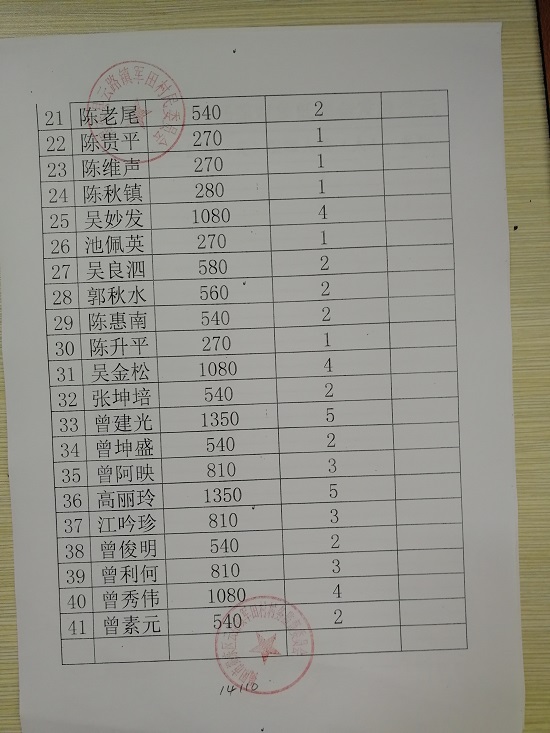 云路镇军田村民委员会
21 陈老尾 540 2
22 陈贵平 270 1
23 陈维声 270 1
24 陈秋镇 280 1
25 吴妙发 1080 4
26 池佩英 270 1
27 吴良泗 580 2
28 郭秋水 560 2
29 陈惠南 540 2
30 陈升平 270 1
31 吴金松 1080 4
32 张坤培 540 2
33 曾建光 1350 5
34 曾坤盛 540 2
35 曾阿映 810 3
36 高丽玲 1350 5
37 江吟珍 810 3
38 曾俊明 540 2
39 曾利何 810 3
40 曾秀伟 1080 4
41 曾素元 540 2
14110